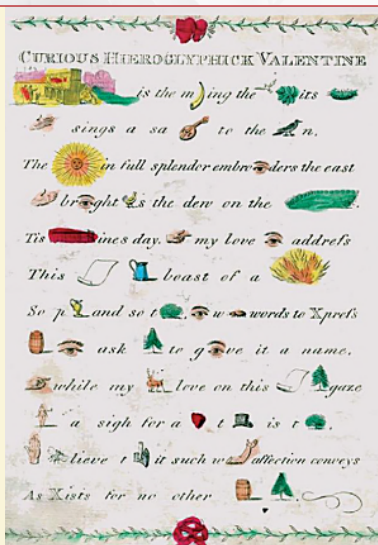 CURIOUS HIEROGLYPHICK VALENTINE
is the m ing the its
sings a sa to the n.
The in full splendor embro ders the east
br ght s the dew on the
Tis ines day. my love addrefs
This boast of a
So p and so t w words to Xprefs
ask to g ve it a name.
while my love on this gaze
a sigh for a t is t
lieve t it such w affection conveys
As Xists for no other